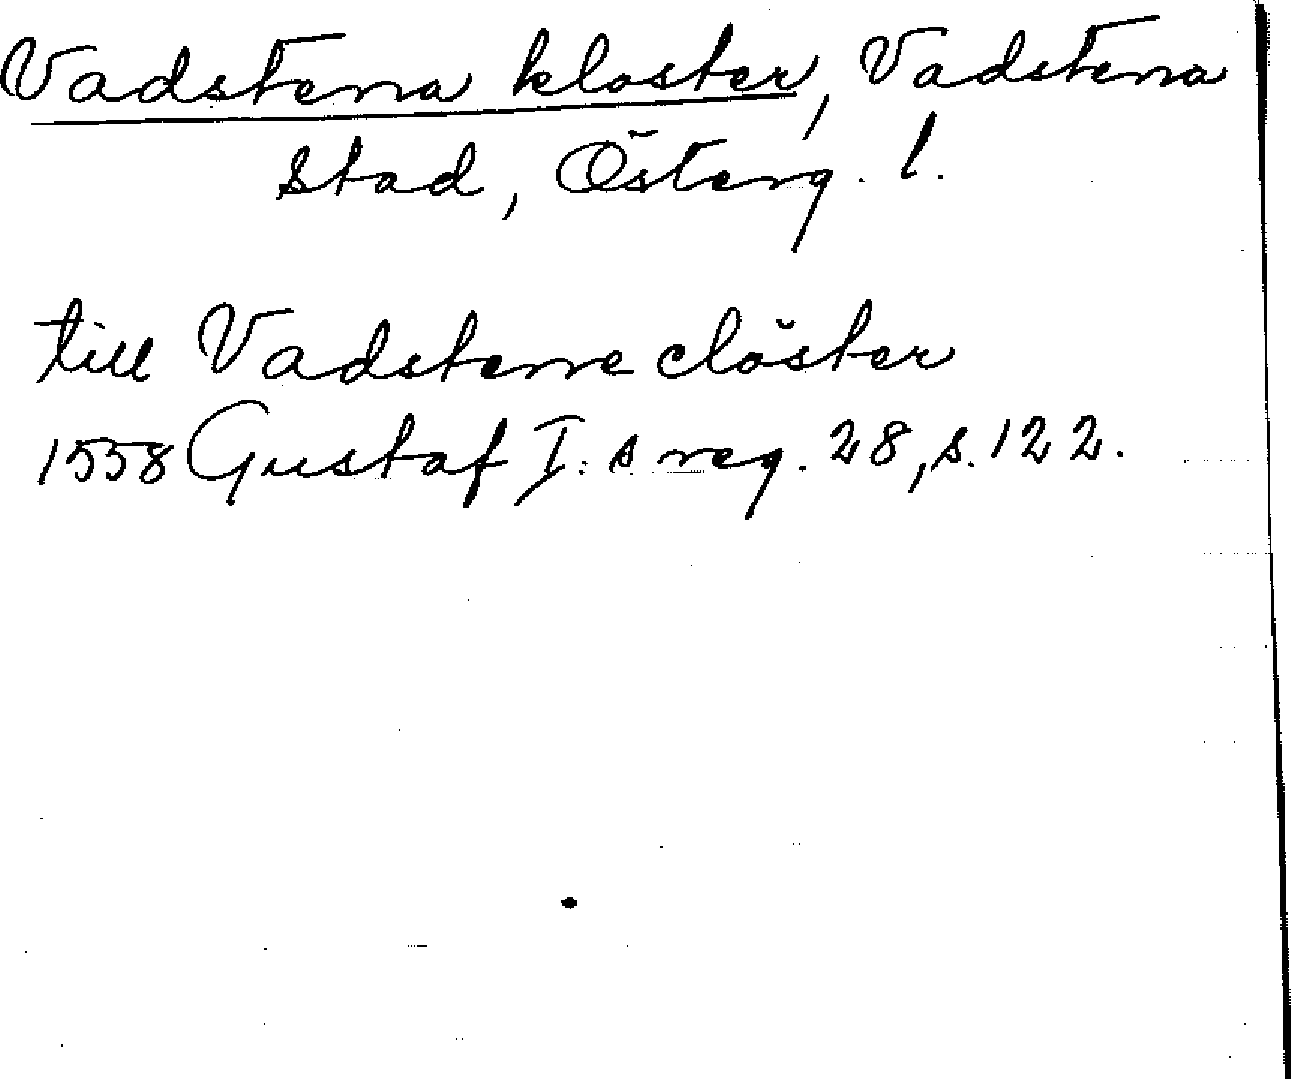 Vadstena kloster, Vadstena
stad, Österg. l.
till Vadstene clöster
1558 Gustaf I:s reg. 28, s. 122.